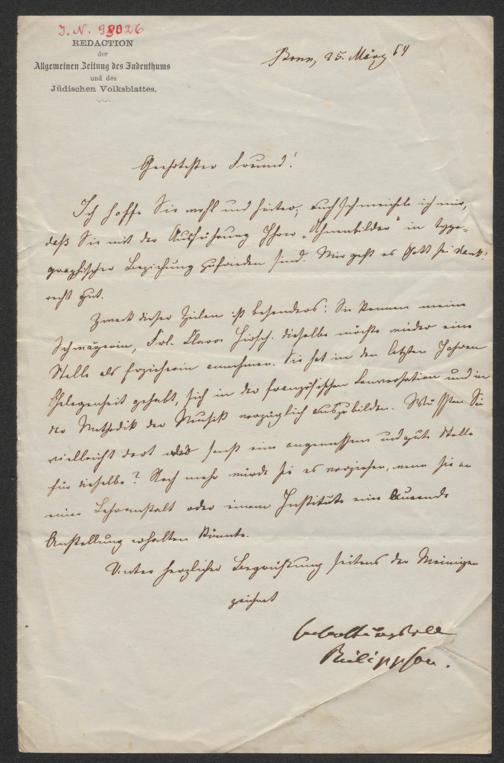 I. N. 98026
REDACTION
der
Allgemeinen Zeitung des Judenthums
und des
Jüdischen Volksblattes.
Bonn, 25. März 64
Geehrtester Freund!
Ich hoffe Sie wohl und heiter; auch schmeichle ich mir,
daß Sie mit der Ausführung Ihrer „Ahnenbilder“ in typo-
graphischer Beziehung zufrieden sind. Mir geht es Gott sei Dank!
recht gut.
Zweck dieser Zeilen ist besonders: Sie kennen meine
Schwägerin, Frl. Clara Hirsch. Dieselbe möchte wieder eine
Stelle als Erzieherin annehmen. Sie hat in den letzten Jahren
Gelegenheit gehabt, sich in der französischen Conversation und in
der Methodik der Musik vorzüglich auszubilden. Wüßten Sie
vielleicht dort oder sonst eine angemessene und gute Stelle
für dieselbe? Noch mehr würde sie es vorziehen, wenn sie an
einer Lehranstalt oder einem Institute eine dauernde
Anstellung erhalten könnte.
Unter herzlicher Begrüßung seitens der Meinigen
zeichnet
hochachtungsvoll
Philippson.